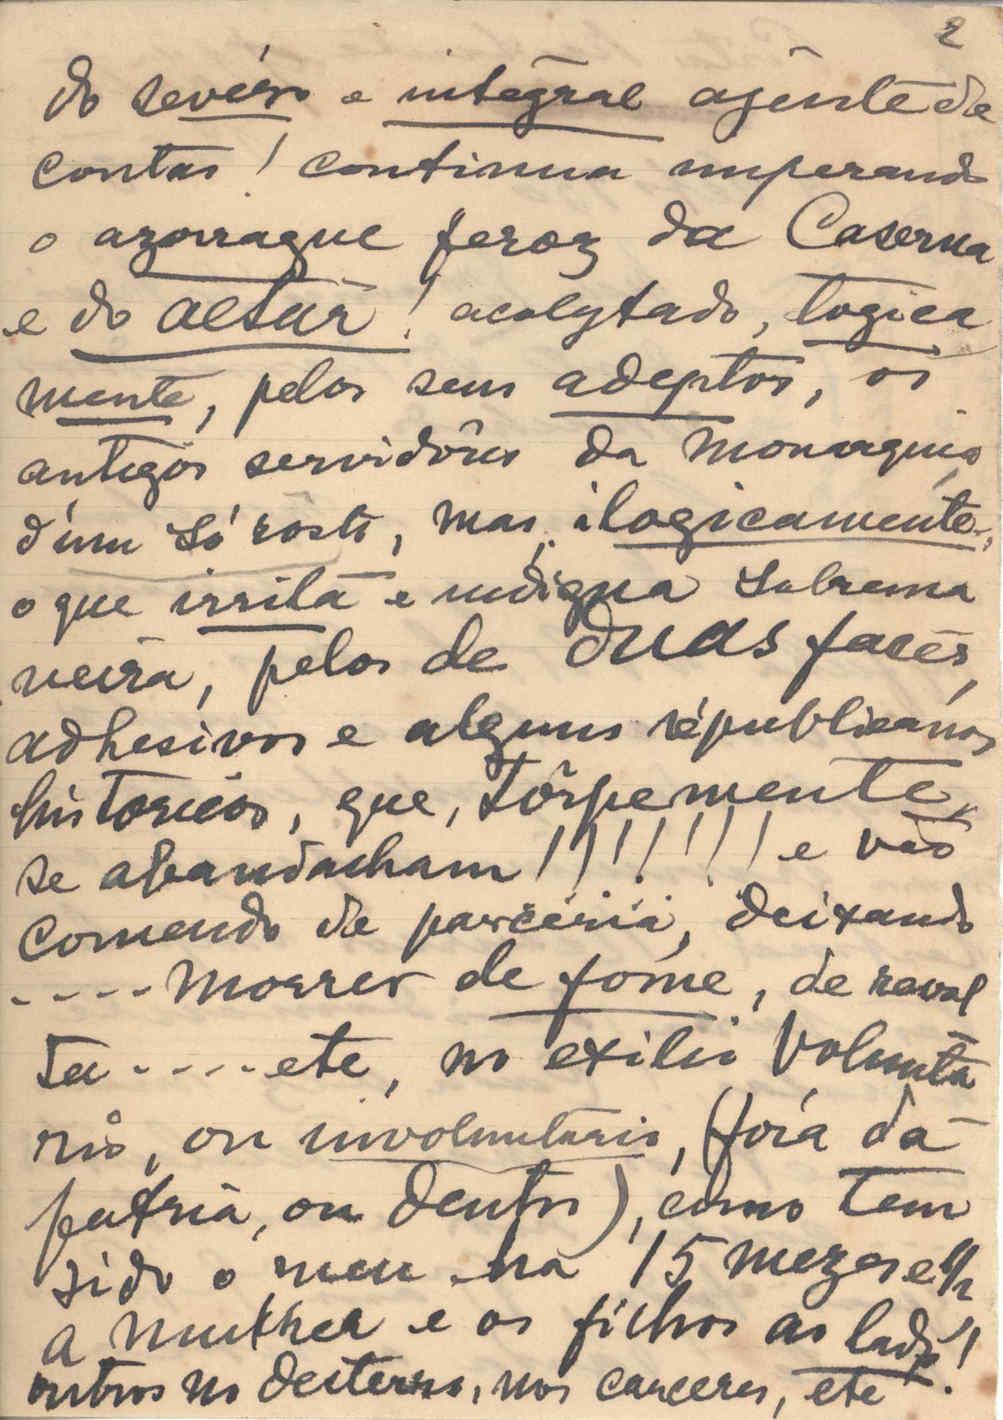 2
do sevéro e integral ajuste de
contas! continua imperando
o azorrague feroz da Caserna
e do altar! acolytado, logica
mente, pelos seus adeptos, os
antigos servidôres da monarquia,
d'um só rôsto, mas, ilogicamente,
o que irrita e indigna sobrema
neira, pelos de duas faces,
adhesivos e alguns républicanos
historicos, que, tôrpemente,
se abandacham!!!!!!! e vão
comendo de parceria, deixando
----morrer de fome, de revol
ta----etc, no exilio volunta
rio, ou involuntario, (fóra da
patria, ou dentro), como tem
sido o meu na 15 mezes e 1/2
a mulher e os filhos ao lado!
outros no desterro, nos carceres, etc